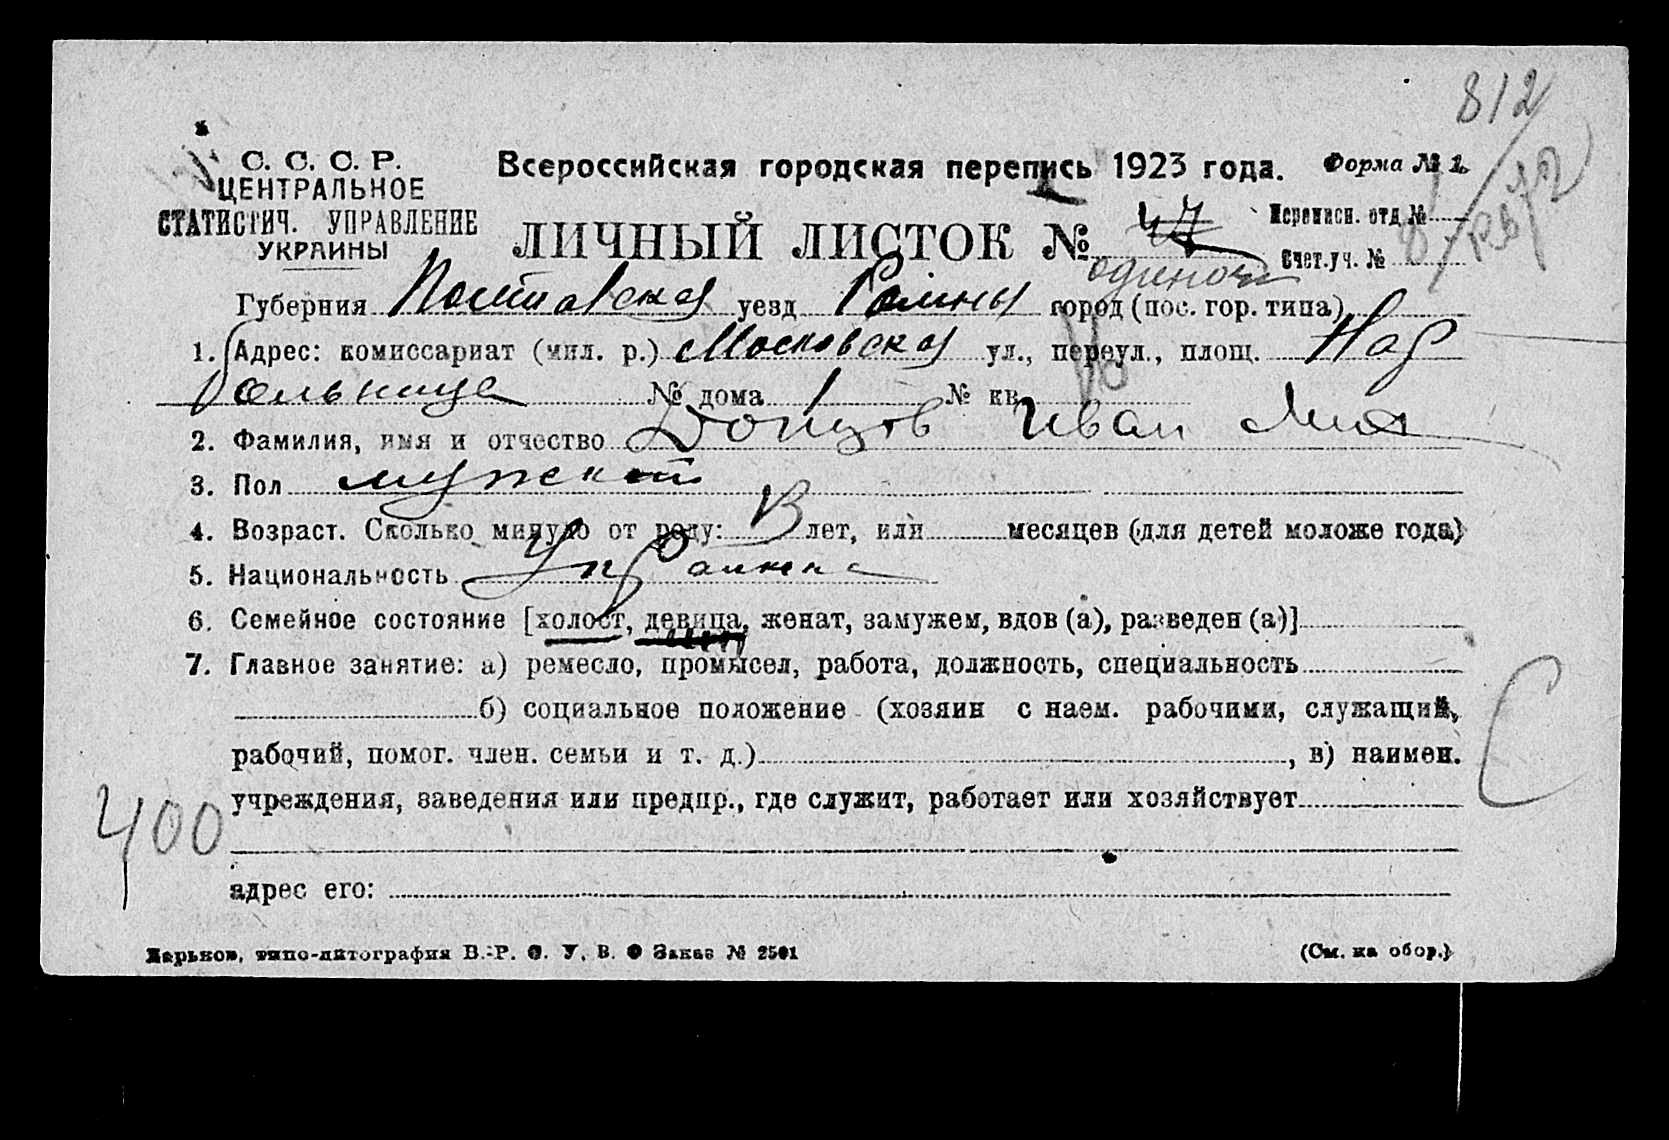 812
С. С. С. Р.
ЦЕНТРАЛЬНОЕ
СТАТИСТИЧ. УПРАВЛЕНИЕ
УКРАИНЫ
Всероссийская городская перепись 1923 года. Форма № 1.
ЛИЧНЫЙ ЛИСТОК № 47
Переписн. отд. №
Счет. уч. №
Губерния Полтавская уезд Ромны город (пос. гор. типа)
1. Адрес: комиссариат (мил. р.) Московская ул., переул., площ. Нар
больница № дома 1 № кв.
2. Фамилия, имя и отчество Донцов Иван
3. Пол мужской
4. Возраст. Сколько минуло от роду: лет, или месяцев (для детей моложе года)
5. Национальность
6. Семейное состояние [холост, девица, женат, замужем, вдов (а), разведен (а)]
7. Главное занятие: а) ремесло, промысел, работа, должность, специальность
б) социальное положение (хозяин с наем. рабочими, служащий,
рабочий, помог. член. семьи и т. д.) , в) наимен.
учреждения, заведения или предпр., где служит, работает или хозяйствует
400
С
адрес его:
Харьков, типо-литография В.-Р. С. У. В. О Заказ № 2501 (См. на обор.)